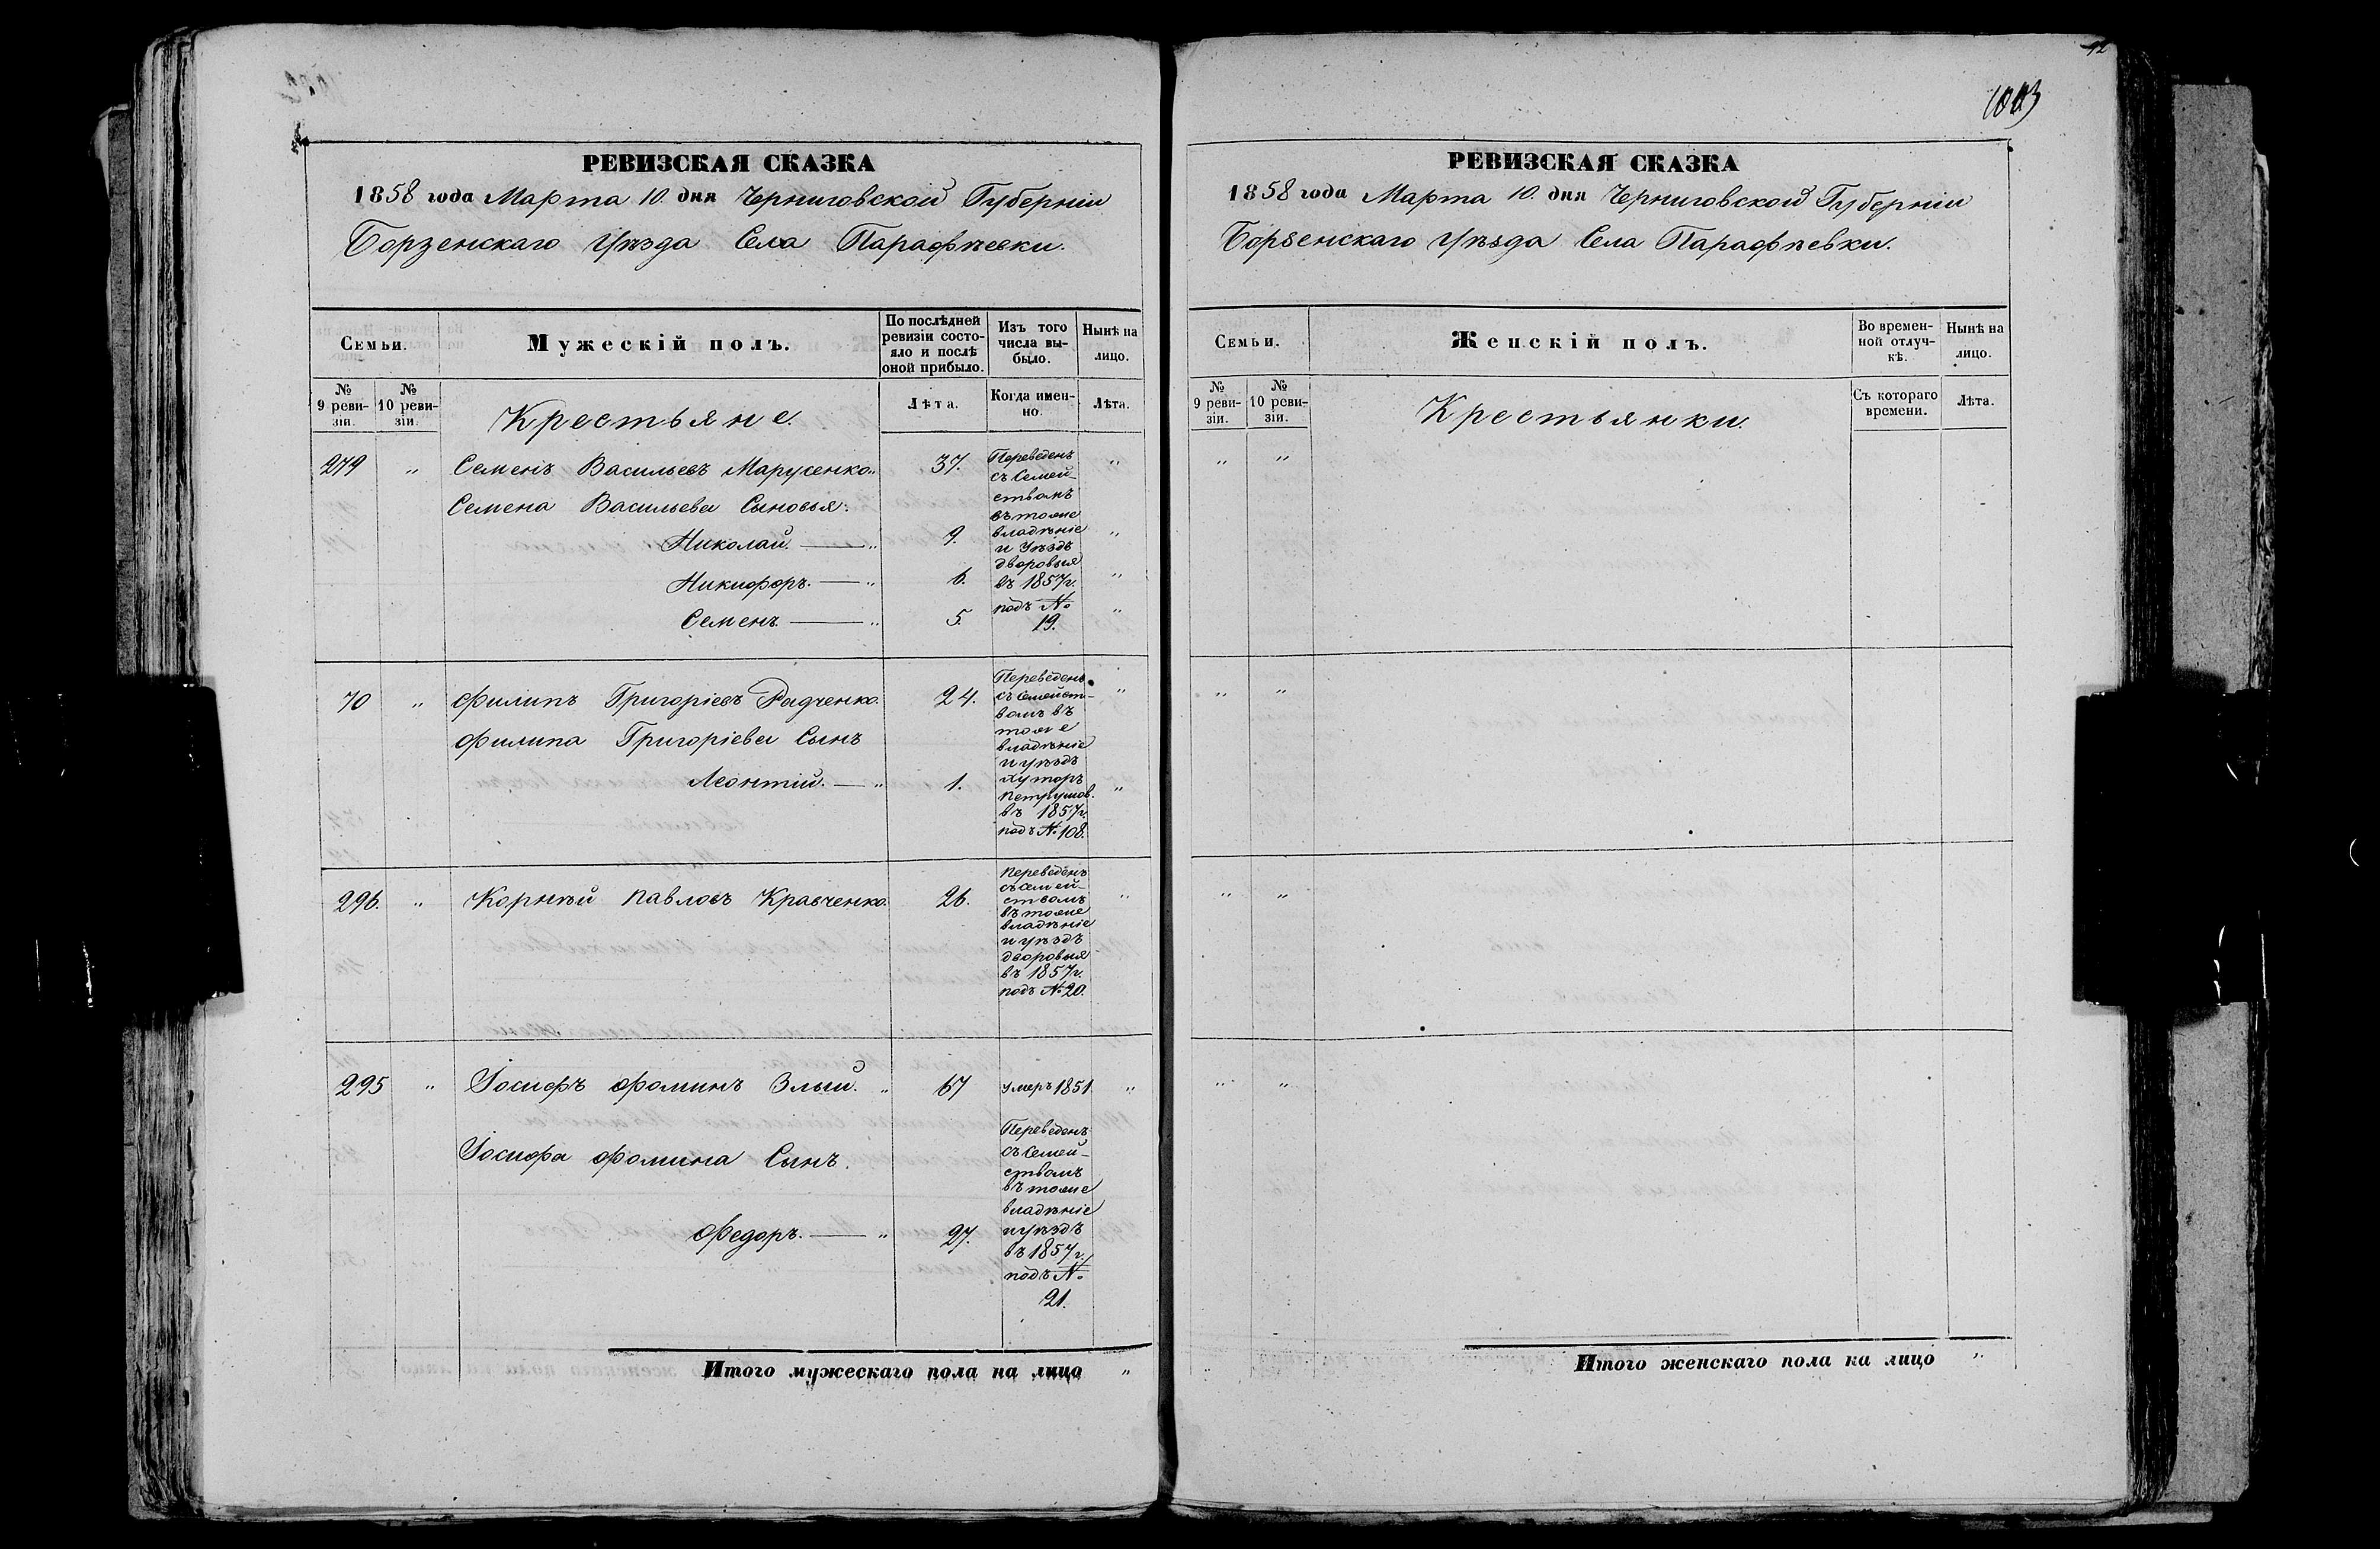 42
1003
РЕВИЗСКАЯ СКАЗКА
1858 года Марта 10. дня Черниговской Губерніи
Борзенскаго Уѣзда Села Парафѣевки.
Семьи.
Мужескій полъ.
По послѣдней ревизіи состояло и послѣ оной прибыло.
Изъ того числа выбыло.
Нынѣ на лицо.
№ 9 ревизіи.
№ 10 ревизіи.
Крестьяне.
Лѣта.
Когда именно.
Лѣта.
279 " Семенъ Васильевъ Марусенко. 37. "
Семена Васильева Сыновья:
Николай. — " 9. "
Никифоръ. — " 6. "
Семенъ. — " 5. "
Переведенъ
съ Семей-
ствомъ
въ тоже
владѣніе
и Уѣздъ
дворовыя
въ 1857г.
подъ №
19.
70 " Филипъ Григоріевъ Радченко. 24. "
Филипа Григоріева Сынъ
Леонтій. — " 1. "
Переведенъ
съ Семейст-
вомъ въ
тоже
владѣніе
и уѣздъ
хуторъ
Петрушов.
въ 1857г.
подъ № 108.
296. " Корнѣй Павловъ Кравченко. 26. "
Переведенъ
съ Семей-
ствомъ
въ тоже
владѣніе
и уѣздъ
дворовыя
въ 1857г.
подъ № 20.
295 " Іосифъ Фоминъ Злый. " 67 умеръ 1851 "
Іосифа Фомина Сынъ.
Федоръ. — " 27.
Переведенъ
съ Семей-
ствомъ
въ тоже
владѣніе
и уѣздъ
въ 1857г.
подъ №
21.
Итого мужескаго пола на лицо "
РЕВИЗСКАЯ СКАЗКА
1858 года Марта 10. дня Черниговской Губерніи
Борзенскаго Уѣзда Села Парафѣевки.
Семьи.
Женскій полъ.
Во временной отлучкѣ.
Нынѣ на лицо.
№ 9 ревизіи.
№ 10 ревизіи.
Крестьянки.
Съ котораго времени.
Лѣта.
" "
" "
" "
" "
Итого женскаго пола на лицо "